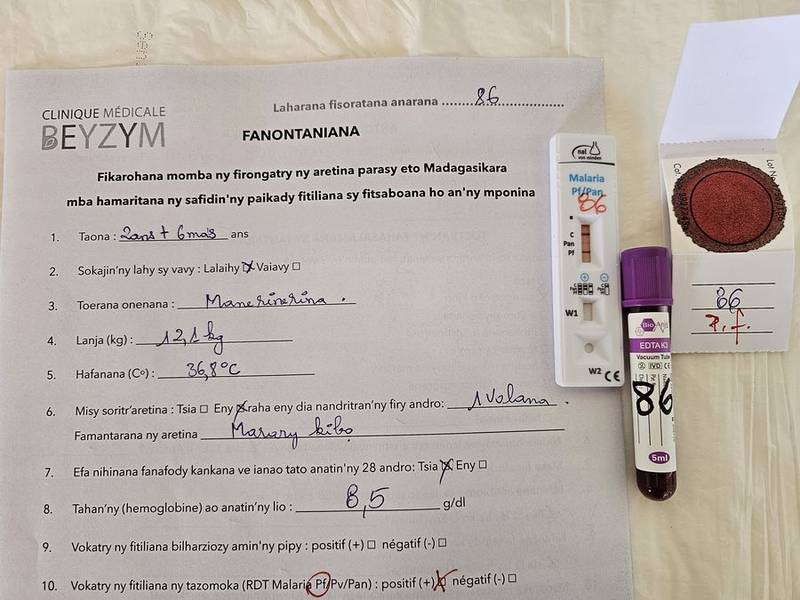 CLINIQUE MÉDICALE
BEYZYM
Laharana fisoratana anarana 86
FANONTANIANA
Fikarohana momba ny firongatry ny aretina parasy eto Madagasikara
mba hamaritana ny safidin'ny paikady fitiliana sy fitsaboana ho an'ny mponina
1. Taona : 2ans + 6mois ans
2. Sokajin'ny lahy sy vavy : Lalaihy ☒ Vaiavy ☐
3. Toerana onenana : Manerinerina .
4. Lanja (kg) : 12,1 kg
5. Hafanana (C°) : 36,8°C
6. Misy soritr'aretina : Tsia ☐ Eny ☒ raha eny dia nandritran'ny firy andro: 1 Volana .
Famantarana ny aretina Marary kibo
7. Efa nihinana fanafody kankana ve ianao tato anatin'ny 28 andro: Tsia ☒ Eny ☐
8. Tahan'ny (hemoglobine) ao anatin'ny lio : 8,5 g/dl
9. Vokatry ny fitiliana bilharziozy amin'ny pipy : positif (+) ☐ négatif (-) ☐
10. Vokatry ny fitiliana ny tazomoka (RDT Malaria Pf/Pv/Pan) : positif (+) ☒ négatif (-) ☐
nal
von minden
Malaria
Pf/Pan
86
C
Pan
Pf
W1
W2 CE
BioAnja
EDTA K3
Vacuum Tube
IVD CE
86
5ml
Lot No
86
P.f.